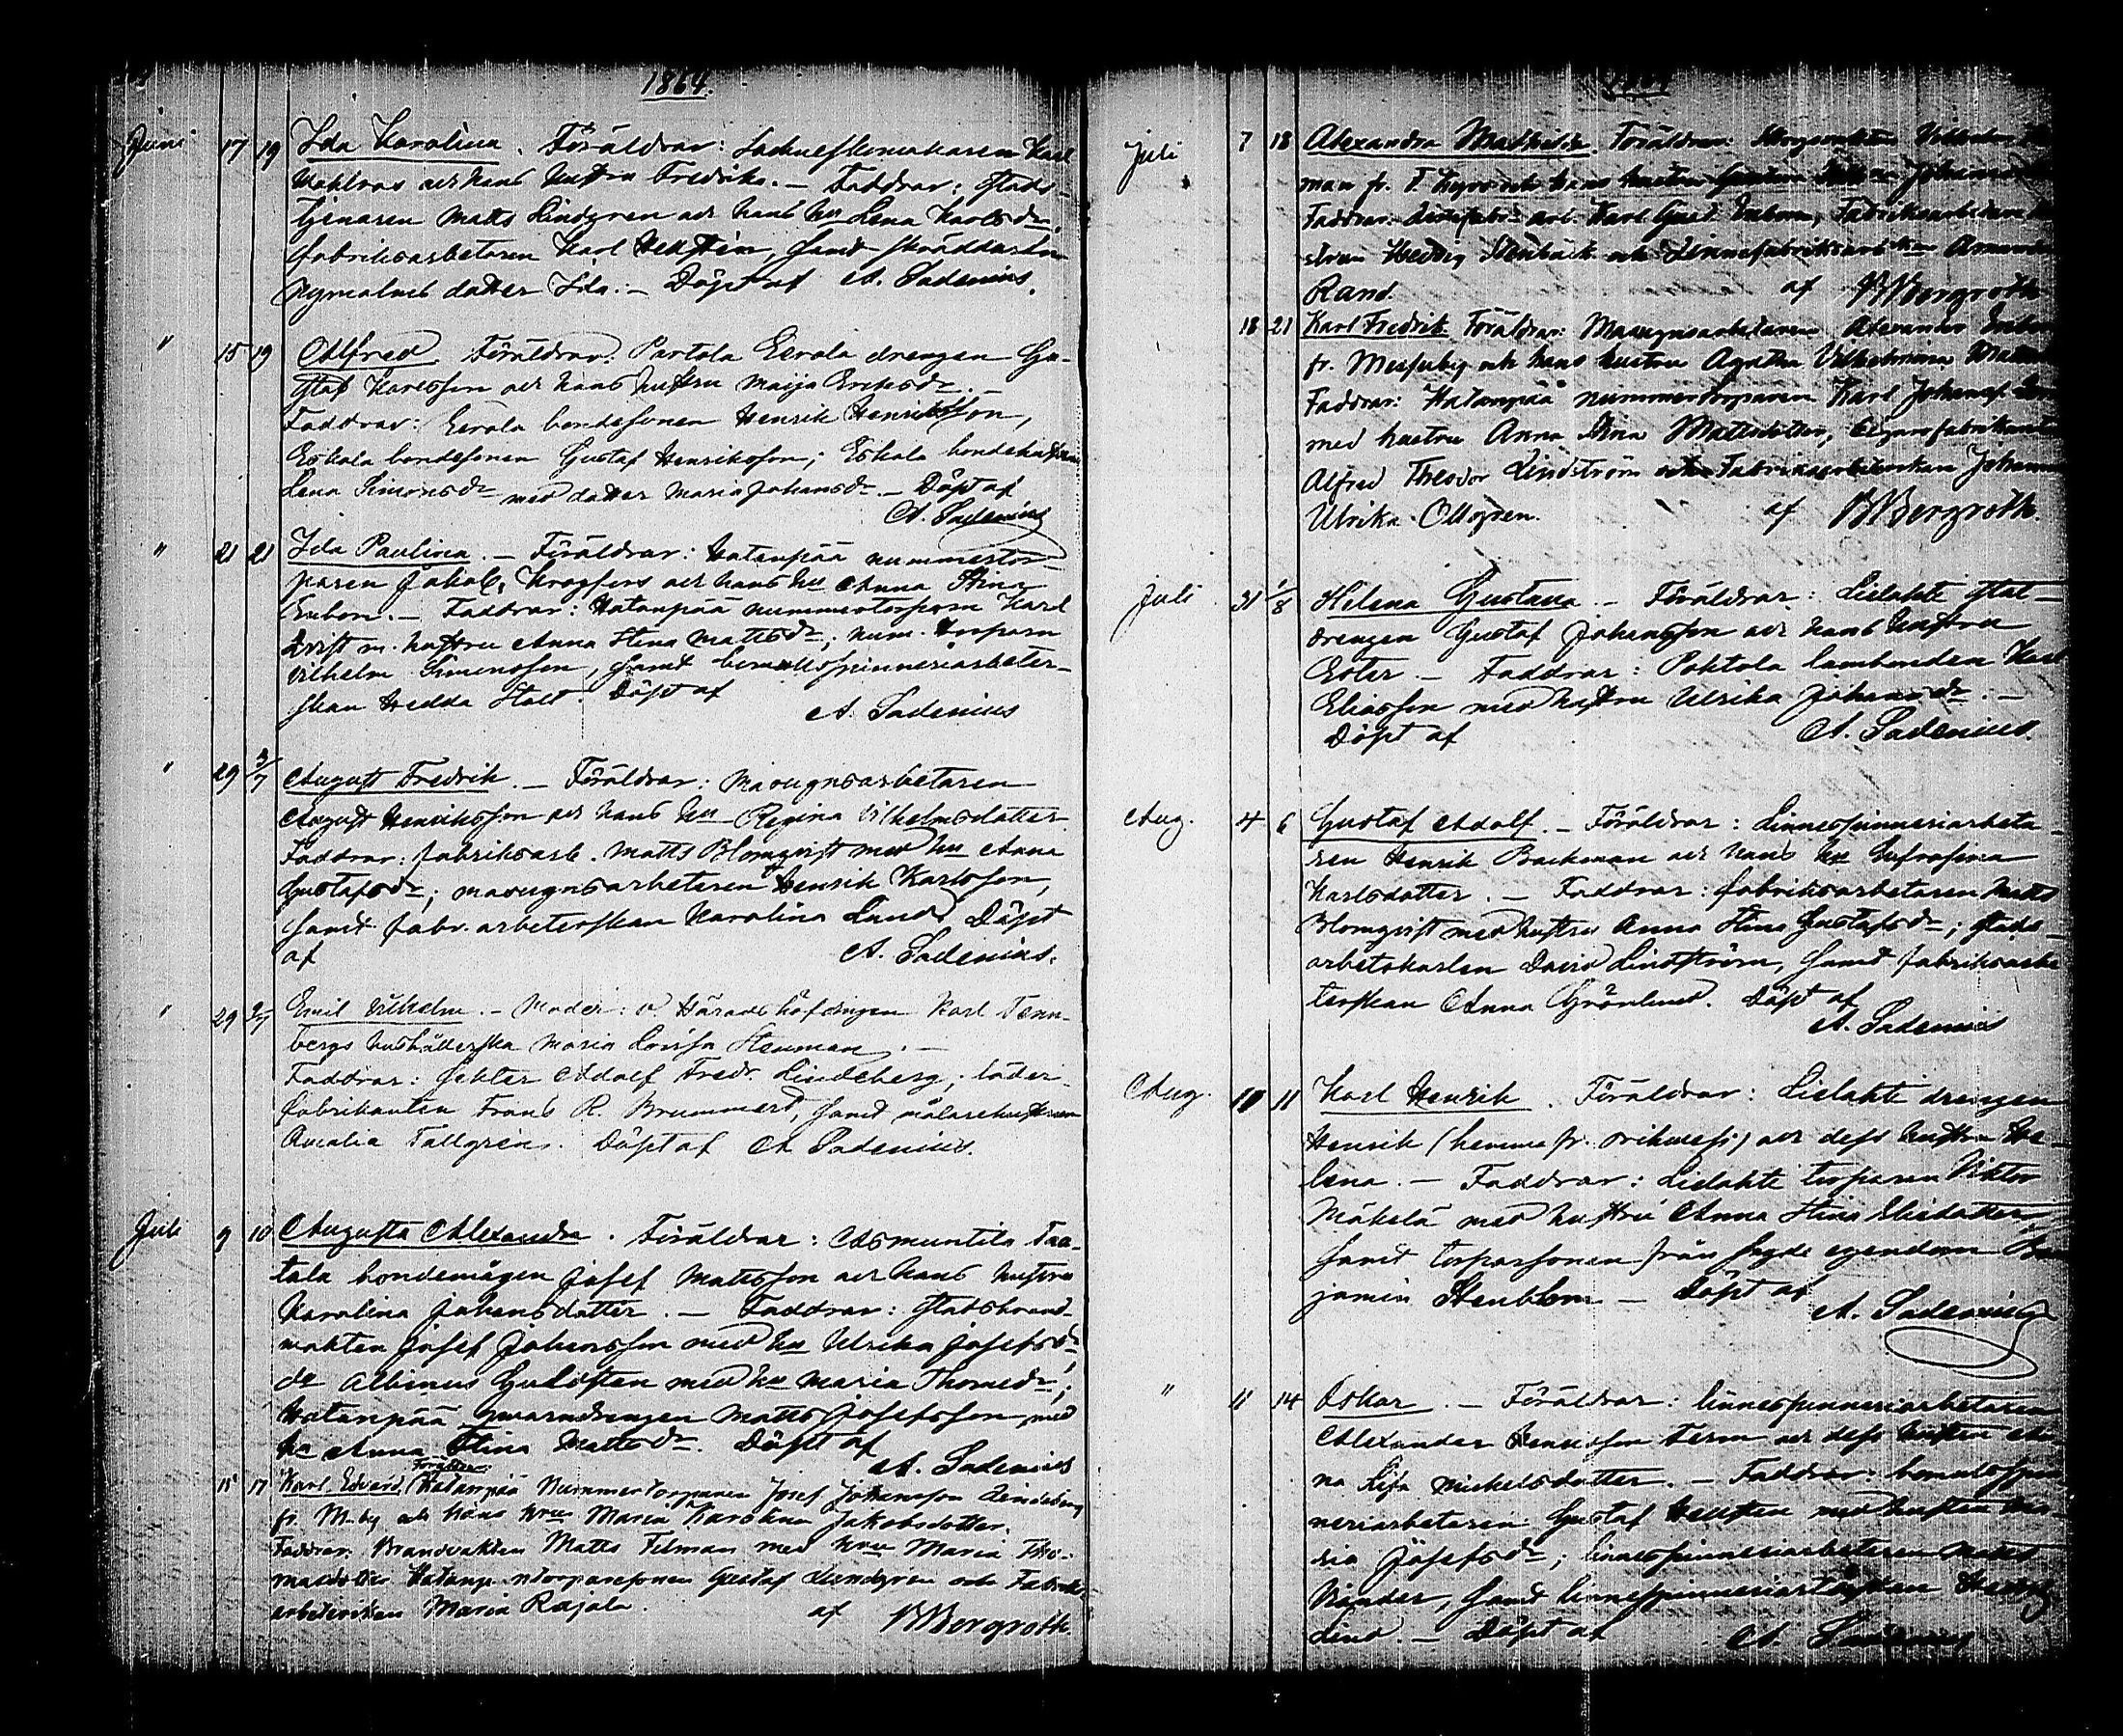 1864.
Juni 17 19 Ida Karolina. Föräldrar: Karl
och hans hustru Fredrika. — Faddrar: stads-
tjenaren Matts Lindgren och hans hu Lena Karlsdr,
fabriksarbetaren Karl Hellstén, samt
dotter Ida. — Döpt af A. Sadenius.
" 15 19 Alfred. Föräldrar: Partola Eerola drengen Gu-
staf Karlsson och hans hustru Maija Eriksdr. —
Faddrar: Eerola bondesonen Henrik Henriksson,
Eskola bondesonen Gustaf Henriksson; Eskola bondehustrun
Lena Simonsdr med dotter Maria Johansdr. — Döpt af
A. Sadenius
" 21 21 Ida Paulina. — Föräldrar: Hatanpää nummertor-
paren Jakob Krogfors och hans hu Anna Stina
Enbom. — Faddrar: Hatanpää nummertorparn Karl
Qvist m. hustru Anna Stina Mattsdr; num. torparn
Vilhelm Simonsson, samt bomullsspinneriarbeter-
skan Hedda Stolt. Döpt af
A. Sadenius
" 29 3/7 August Fredrik. — Föräldrar: Masugnsarbetaren
August Henriksson och hans hu Regina Vilhelmsdotter.
Faddrar: fabriksarb. Matts Blomqvist med hu Anna
Gustafsdr; masugnsarbetaren Henrik Karlsson,
samt fabr. arbeterskan Karolina Lund. Döpt
af A. Sadenius.
" 29 3/7 Emil Vilhelm. — Moder: v Häradshöfdingen Karl Tenn-
bergs hushållerska Maria Lovisa Stenman. —
Faddrar: Adolf Fredr. Lindeberg; läder-
fabrikanten Frans R. Brummert, samt målarehustrun
Amalia Tallgrén. Döpt af A. Sadenius.
Juli 9 10 Augusta Alexandra. Föräldrar: Taa-
tala bondemågen Josef Mattsson och hans hustru
Karolina Johansdotter. — Faddrar: stadsbrand-
vakten Josef Johansson med hu Ulrika Josefsdr;
do Albinus med hu Maria Thomasdr;
Hatanpää qvarndrengen Matts Josefsson med
hu Anna Stina Mattsdr. Döpt af A. Sadenius
15 17 Karl Edvard. Föräldrar: Hatanpää Nummertorparen Josef Johansson Lindeberg
fr. M-by och hans hru Maria Karolina Jakobsdotter.
Faddrar: Brandvakten Matts Filman med hru Maria Tho-
masdotter Hatanp. ntorparesonen Gustaf Lundgren och Fabriks-
arbeterskan Maria Rajala. af B Bergroth.
Juli 7 18 Alexandra Mathilda. Föräldrar:
man fr. T. och hans hustru
Faddrar: arb. Karl Gust. Enbom, Fabriksarbetare
Hedvig Stenbäck och Linnefabriksarb
Rand. af B Bergroth
18 21 Karl Fredrik. Föräldrar: Masugnsarbetaren Alexander Enbom
fr. Messuby och hans hustru Agatha Vilhelmina
Faddrar: Hatanpää nummertorparen Karl Johansson
med hustru Anna Stina Mattsdotter, Cigarrfabrikanten
Alfred Theodor Lindström och Fabriksarbeterskan Johanna
Ulrika Ollogren. af B Bergroth.
Juli 31 1/8 Helena Gustava. — Föräldrar: Lielahti stat-
drengen Gustaf Johansson och hans hustru
Ester. — Faddrar: Pohtola lambonden Karl
Eliasson med hustru Ulrika Johansdr. —
Döpt af A. Sadenius.
Aug. 4 6 Gustaf Adolf. — Föräldrar: Linnespinneriarbeta-
ren Henrik Backman och hans hu Eufrosina
Karlsdotter. — Faddrar: fabriksarbetaren Matts
Blomqvist med hustru Anna Stina Gustafsdr; stads-
arbetskarlen David Lindström, samt fabriksarbe-
terskan Anna Grönlund. Döpt af
A. Sadenius
Aug. 10 11 Karl Henrik. Föräldrar: Lielahti drengen
Henrik (hemma fr. Orihvesi) och dess hustru He-
lena. — Faddrar: Lielahti torparen Viktor
Mäkelä med hustru Anna Stina Eliedotter,
samt torparsonen från egendom Ben-
jamin Stenblom — Döpt af
A. Sadenius
" 11 14 Oskar. — Föräldrar: linnespinneriarbetaren
Alexander Term och dess hustru An-
na Lisa Mickelsdotter. — Faddrar: bomullsspin-
neriarbetaren Gustaf Hellstén med hustru Ma-
ria Josefsdr; linnespinneriarbetaren Matts
Nander, samt linnespinneriarbeterskan Hedvig
Lind. — Döpt af A Sadenius